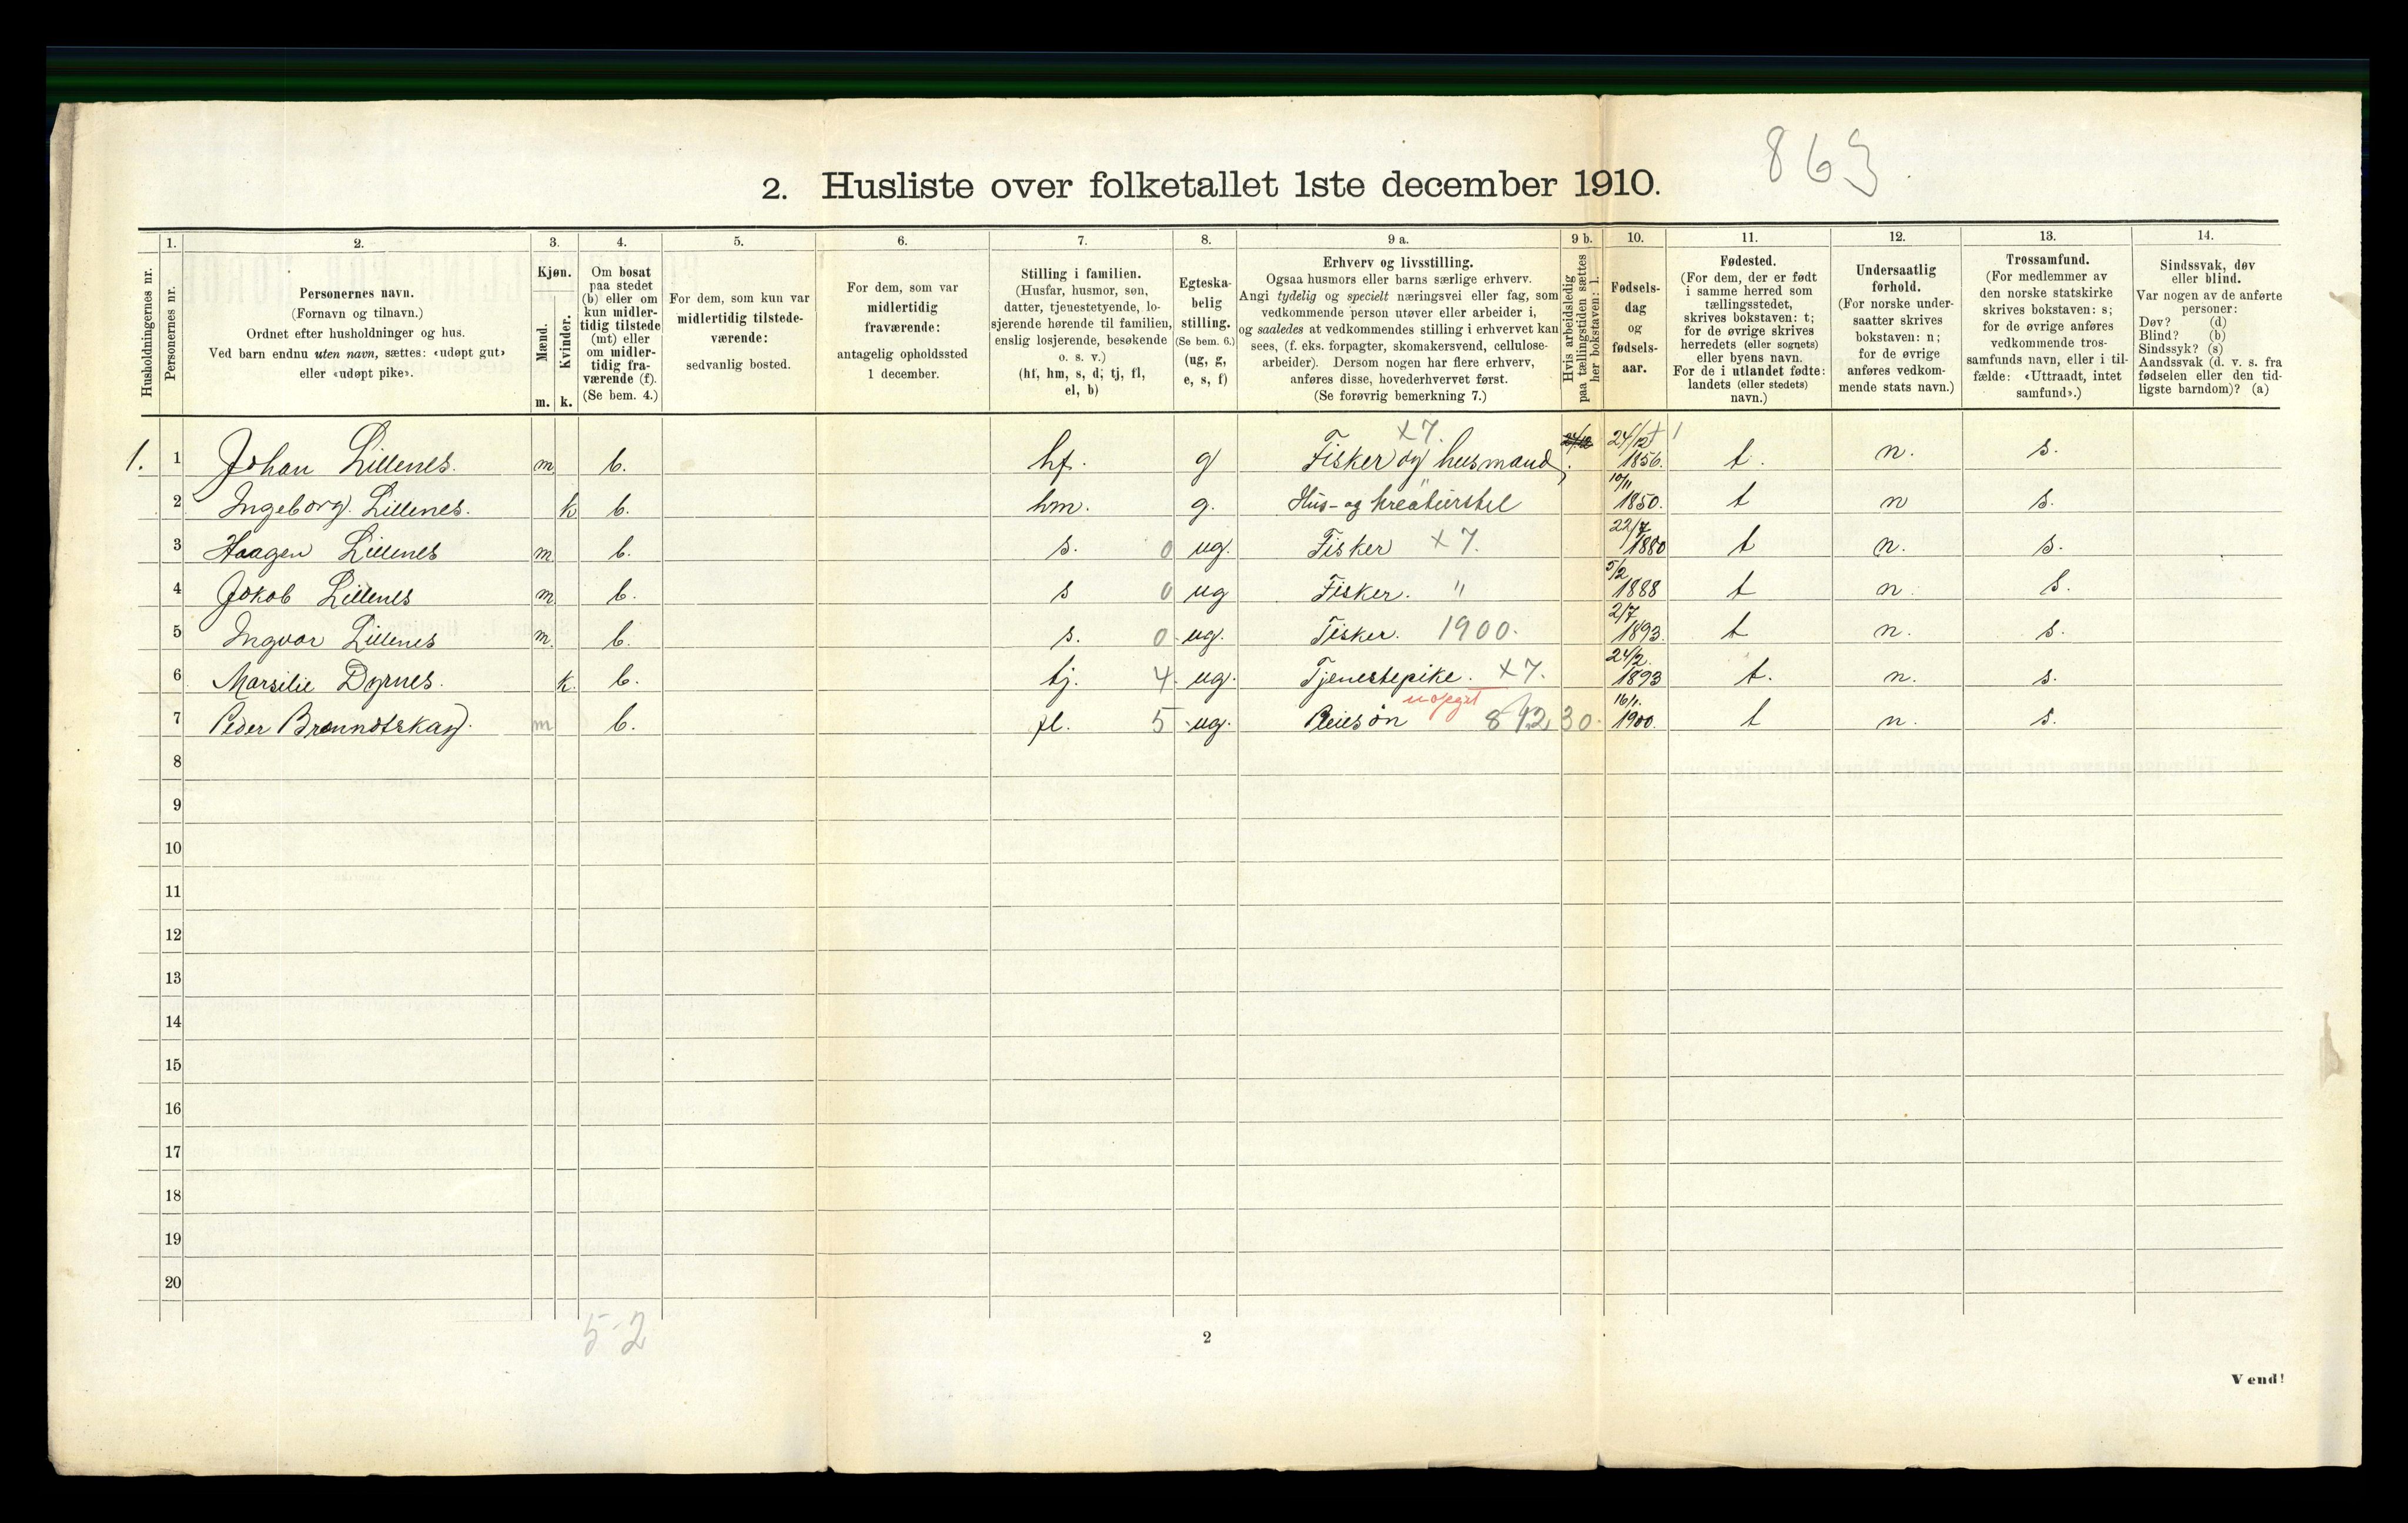 863.
2. Husliste over folketallet 1ste december 1910.
Husholdningernes nr.
1. Personernes nr.
2. Personernes navn. (Fornavn og tilnavn.) Ordnet efter husholdninger og hus. Ved barn endnu uten navn, sættes: «udøpt gut» eller «udøpt pike».
3. Kjøn. Mænd. m. Kvinder. k.
4. Om bosat paa stedet (b) eller om kun midlertidig tilstede (mt) eller om midlertidig fraværende (f). (Se bem. 4.)
5. For dem, som kun var midlertidig tilstedeværende: sedvanlig bosted.
6. For dem, som var midlertidig fraværende: antagelig opholdssted 1 december.
7. Stilling i familien. (Husfar, husmor, søn, datter, tjenestetyende, losjerende hørende til familien, enslig losjerende, besøkende o. s. v.) (hf, hm, s, d, tj, fl, el, b)
8. Egteskabelig stilling. (Se bem. 6.) (ug, g, e, s, f)
9 a. Erhverv og livsstilling. Ogsaa husmors eller barns særlige erhverv. Angi tydelig og specielt næringsvei eller fag, som vedkommende person utøver eller arbeider i, og saaledes at vedkommendes stilling i erhvervet kan sees, (f. eks. forpagter, skomakersvend, cellulosearbeider). Dersom nogen har flere erhverv, anføres disse, hovederhvervet først. (Se forøvrig bemerkning 7.)
9 b. Hvis arbeidsledig paa tællingstiden sættes her bokstaven: l.
10. Fødselsdag og fødselsaar.
11. Fødested. (For dem, der er født i samme herred som tællingsstedet, skrives bokstaven: t; for de øvrige skrives herredets (eller sognets) eller byens navn. For de i utlandet fødte: landets (eller stedets) navn.)
12. Undersaatlig forhold. (For norske undersaatter skrives bokstaven: n; for de øvrige anføres vedkommende stats navn.)
13. Trossamfund. (For medlemmer av den norske statskirke skrives bokstaven: s; for de øvrige anføres vedkommende trossamfunds navn, eller i tilfælde: «Uttraadt, intet samfund».)
14. Sindssvak, døv eller blind. Var nogen av de anførte personer: Døv? (d) Blind? (b) Sindssyk? (s) Aandssvak (d. v. s. fra fødselen eller den tidligste barndom)? (a)
1. 1 Johan Lillenes. m b. hf. g Fisker og husmand x7. 24/12 1856. t. n. s.
2 Ingeborg Lillenes. k b. hm. g. Hus- og kreaturstel 10/11 1850. t n s.
3 Haagen Lillenes m b. s. 0 ug. Fisker x7. 22/7 1880 t n. s.
4 Jokob Lillenes m b. s 0 ug Fisker. " 5/2 1888 t n. s.
5 Ingvar Lillenes m. b. s. 0 ug. Fisker. 1900. 2/7 1893. t n. s.
6 Marsilie Dyrnes. k. b. tj. 4 ug. Tjenestepike. x7. 24/2. 1893 t. n. s.
7 Peder m b. fl. 5 ug. Pleiesøn 30. 16/1. 1900. t n. s.
8
9
10
11
12
13
14
15
16
17
18
19
20
5-2
2
Vend!